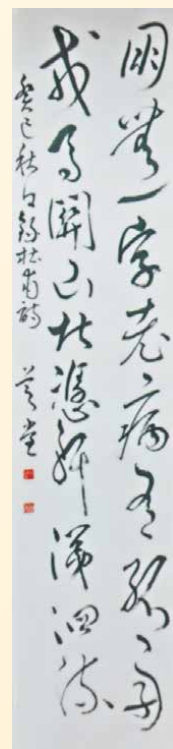 朋無一字老病有孤舟
戎馬關山北憑軒涕泗流
癸巳秋日錄杜甫詩 堂